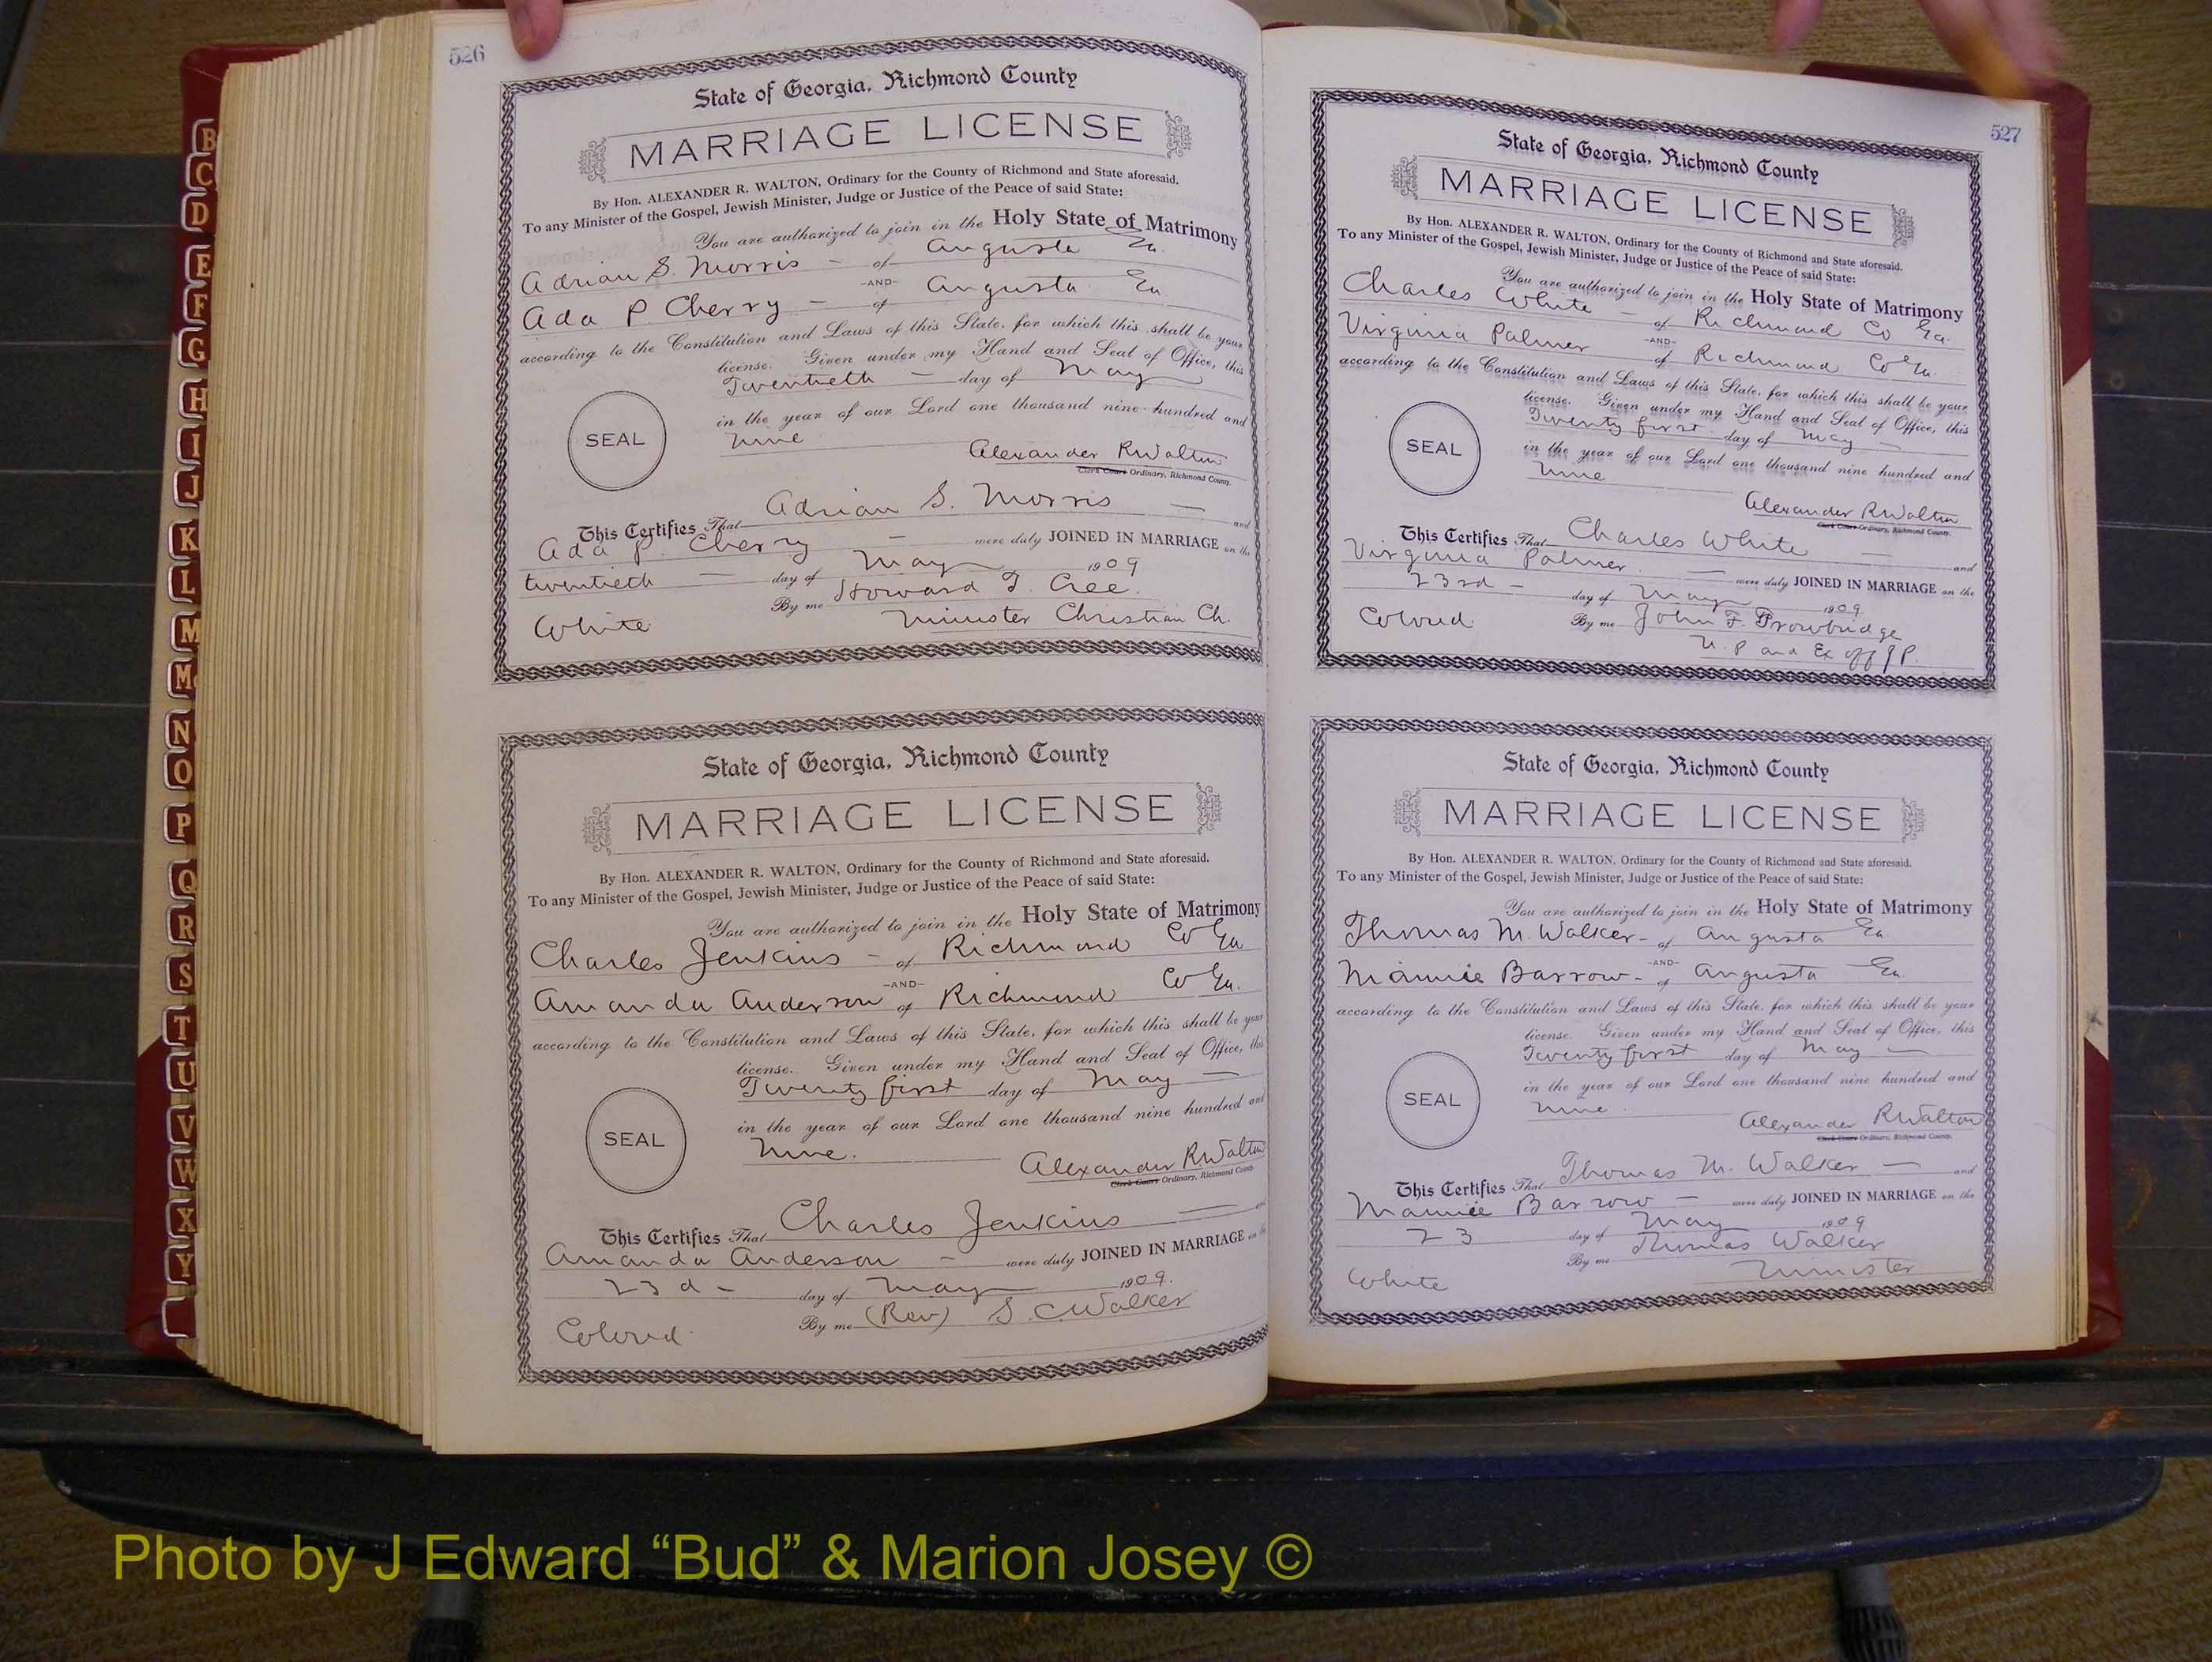 B
C
D
E
F
G
H
I
J
K
L
M
Mc
N
O
P
Q
R
S
T
U
V
W
X
Y
526
State of Georgia, Richmond County
MARRIAGE LICENSE
By Hon. ALEXANDER R. WALTON, Ordinary for the County of Richmond and State aforesaid.
To any Minister of the Gospel, Jewish Minister, Judge or Justice of the Peace of said State:
You are authorized to join in the Holy State of Matrimony
Adrian S. Morris - of Augusta Ga.
-AND-
Ada P Cherry - of Augusta Ga
according to the Constitution and Laws of this State, for which this shall be your
license. Given under my Hand and Seal of Office, this
Twentieth - day of May
in the year of our Lord one thousand nine hundred and
nine
SEAL
Alexander R Walton
Clerk Court Ordinary, Richmond County.
This Certifies That Adrian S. Morris - and
Ada P. Cherry - were duly JOINED IN MARRIAGE on the
twentieth - day of May 1909
By me Howard T. Cree.
White Minister Christian Ch.
State of Georgia, Richmond County
MARRIAGE LICENSE
By Hon. ALEXANDER R. WALTON, Ordinary for the County of Richmond and State aforesaid.
To any Minister of the Gospel, Jewish Minister, Judge or Justice of the Peace of said State:
You are authorized to join in the Holy State of Matrimony
Charles Jenkins - of Richmond Co Ga
-AND-
Amanda Anderson of Richmond Co Ga.
according to the Constitution and Laws of this State, for which this shall be your
license. Given under my Hand and Seal of Office, this
Twenty first day of May -
in the year of our Lord one thousand nine hundred and
nine.
SEAL
Alexander R Walton
Clerk Court Ordinary, Richmond County.
This Certifies That Charles Jenkins - and
Amanda Anderson - were duly JOINED IN MARRIAGE on the
23d - day of May 1909.
By me (Rev) S. C. Walker
Colored
527
State of Georgia, Richmond County
MARRIAGE LICENSE
By Hon. ALEXANDER R. WALTON, Ordinary for the County of Richmond and State aforesaid.
To any Minister of the Gospel, Jewish Minister, Judge or Justice of the Peace of said State:
You are authorized to join in the Holy State of Matrimony
Charles White - of Richmond Co Ga.
-AND-
Virginia Palmer of Richmond Co Ga.
according to the Constitution and Laws of this State, for which this shall be your
license. Given under my Hand and Seal of Office, this
Twenty first day of May -
in the year of our Lord one thousand nine hundred and
nine
SEAL
Alexander R Walton
Clerk Court Ordinary, Richmond County.
This Certifies That Charles White - and
Virginia Palmer. - were duly JOINED IN MARRIAGE on the
23rd - day of May 1909.
Colored By me John F. Trowbridge
N. P and Ex off J P.
State of Georgia, Richmond County
MARRIAGE LICENSE
By Hon. ALEXANDER R. WALTON, Ordinary for the County of Richmond and State aforesaid.
To any Minister of the Gospel, Jewish Minister, Judge or Justice of the Peace of said State:
You are authorized to join in the Holy State of Matrimony
Thomas M. Walker - of Augusta Ga
-AND-
Mamie Barrow - of Augusta Ga
according to the Constitution and Laws of this State, for which this shall be your
license. Given under my Hand and Seal of Office, this
Twenty first day of May -
in the year of our Lord one thousand nine hundred and
nine.
SEAL
Alexander R Walton
Clerk Court Ordinary, Richmond County.
This Certifies That Thomas M. Walker - and
Mamie Barrow - were duly JOINED IN MARRIAGE on the
23 day of May 1909
By me Thomas Walker
White Minister
Photo by J Edward “Bud” & Marion Josey ©